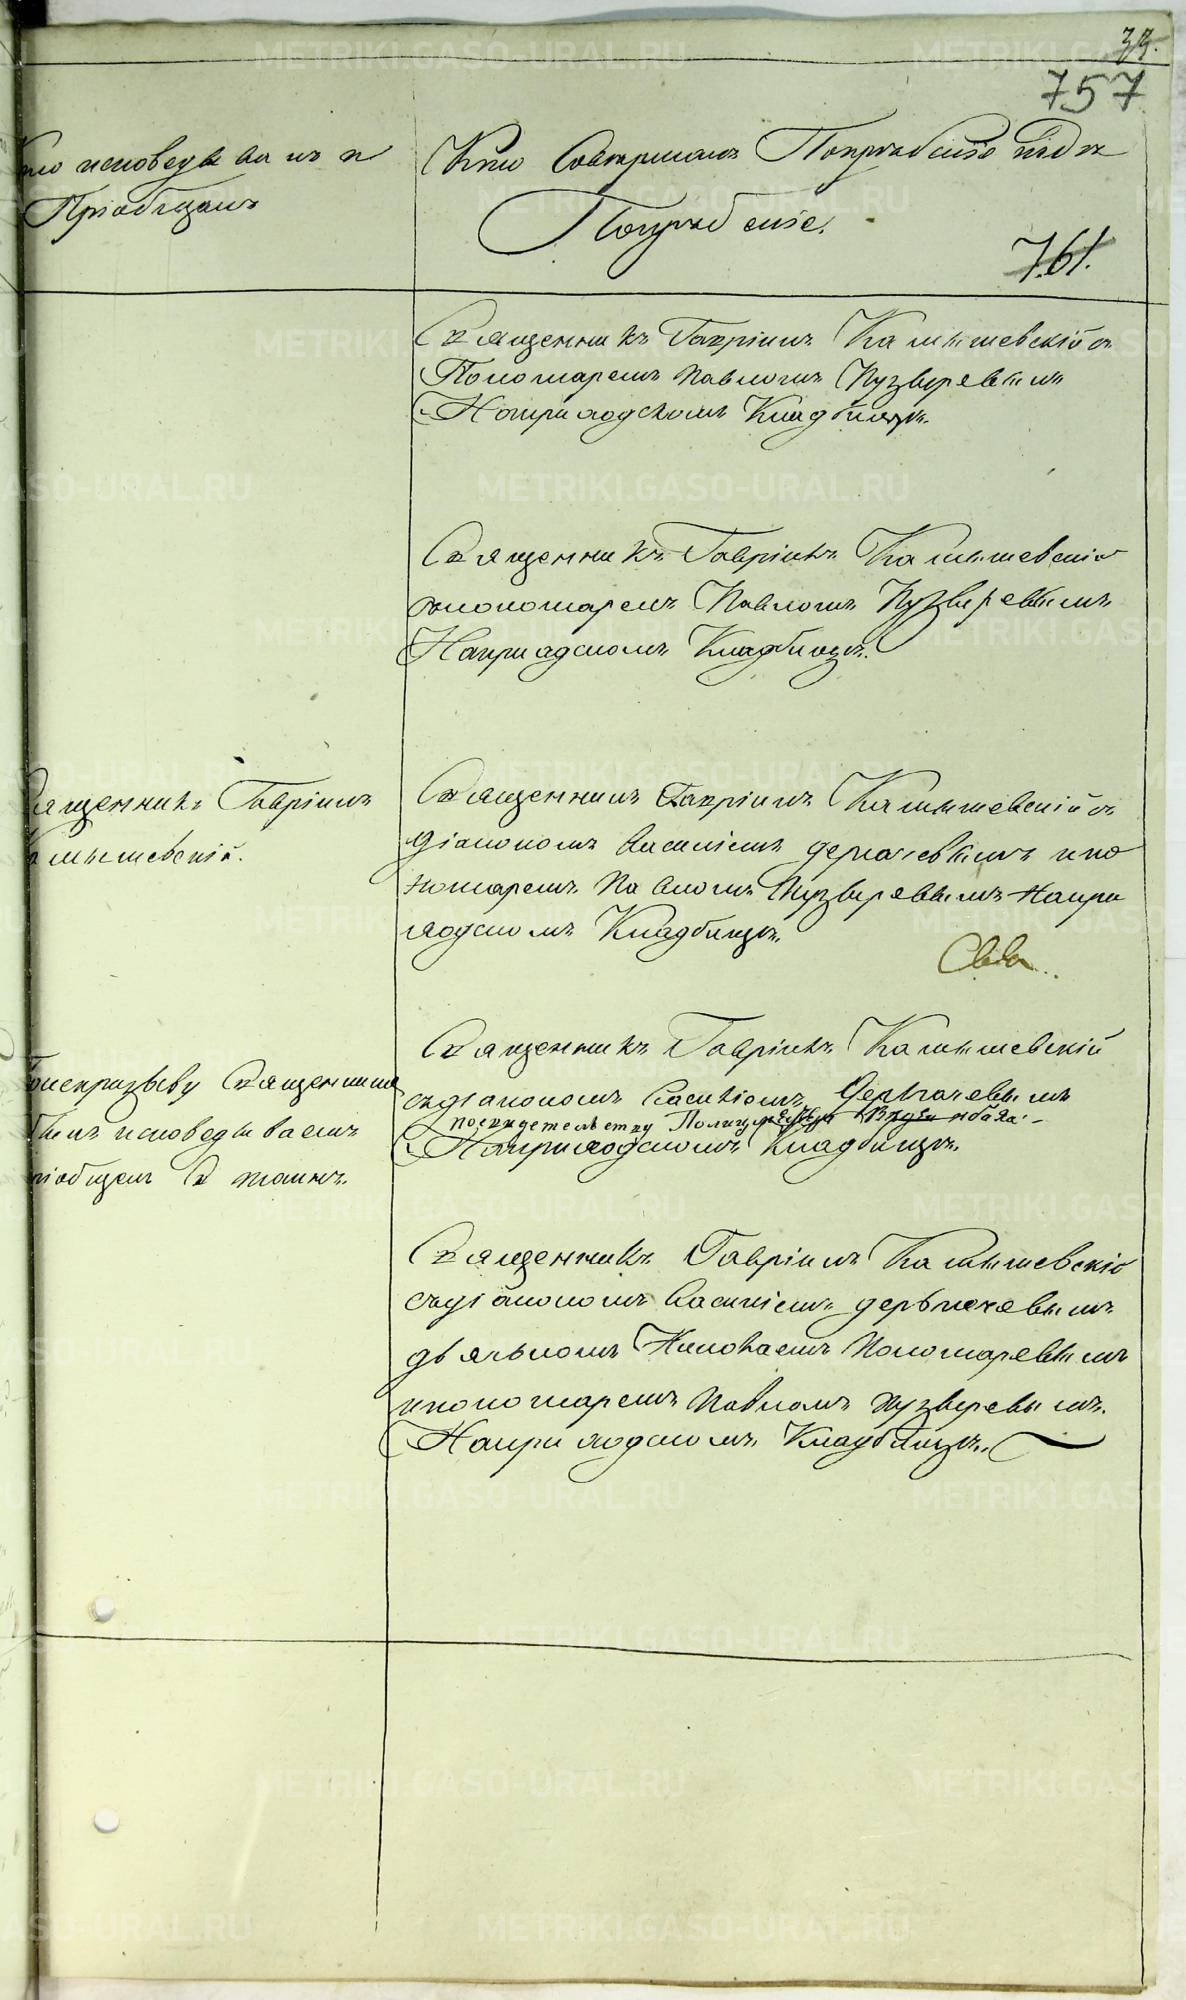 33.
757
Кто исповедывалъ и
Пріобщалъ
Кто Совершалъ Погребеніе и гдѣ
Погребеніе.
761.
Священникъ Гавріилъ Камышевскій съ
Пономаремъ Павломъ Пузыревымъ
На приходскомъ Кладбищѣ.
Священникъ Гавріилъ Камышевскій
съ пономаремъ Павломъ Пузыревымъ
На приходскомъ Кладбищѣ.
Священникъ Гавріилъ
Камышевскій.
Священникъ Гавріилъ Камышевскій съ
діакономъ Василіемъ дергачевымъ и по
номаремъ Павломъ Пузыревымъ На при
ходскомъ Кладбищѣ.
Священника
былъ исповедываемъ
пріобщенъ С таинъ.
Священникъ Гавріилъ Камышевскій
съ діакономъ Василіемъ Дергачевымъ
по свидетельству
На приходскомъ Кладбищѣ.
Священникъ Гавріилъ Камышевскій
съ діакономъ Василіемъ дергачевымъ
дьячкомъ Николаемъ Пономаревымъ
и пономаремъ Павломъ Пузыревымъ.
На приходскомъ Кладбищѣ.
METRIKI.GASO-URAL.RU